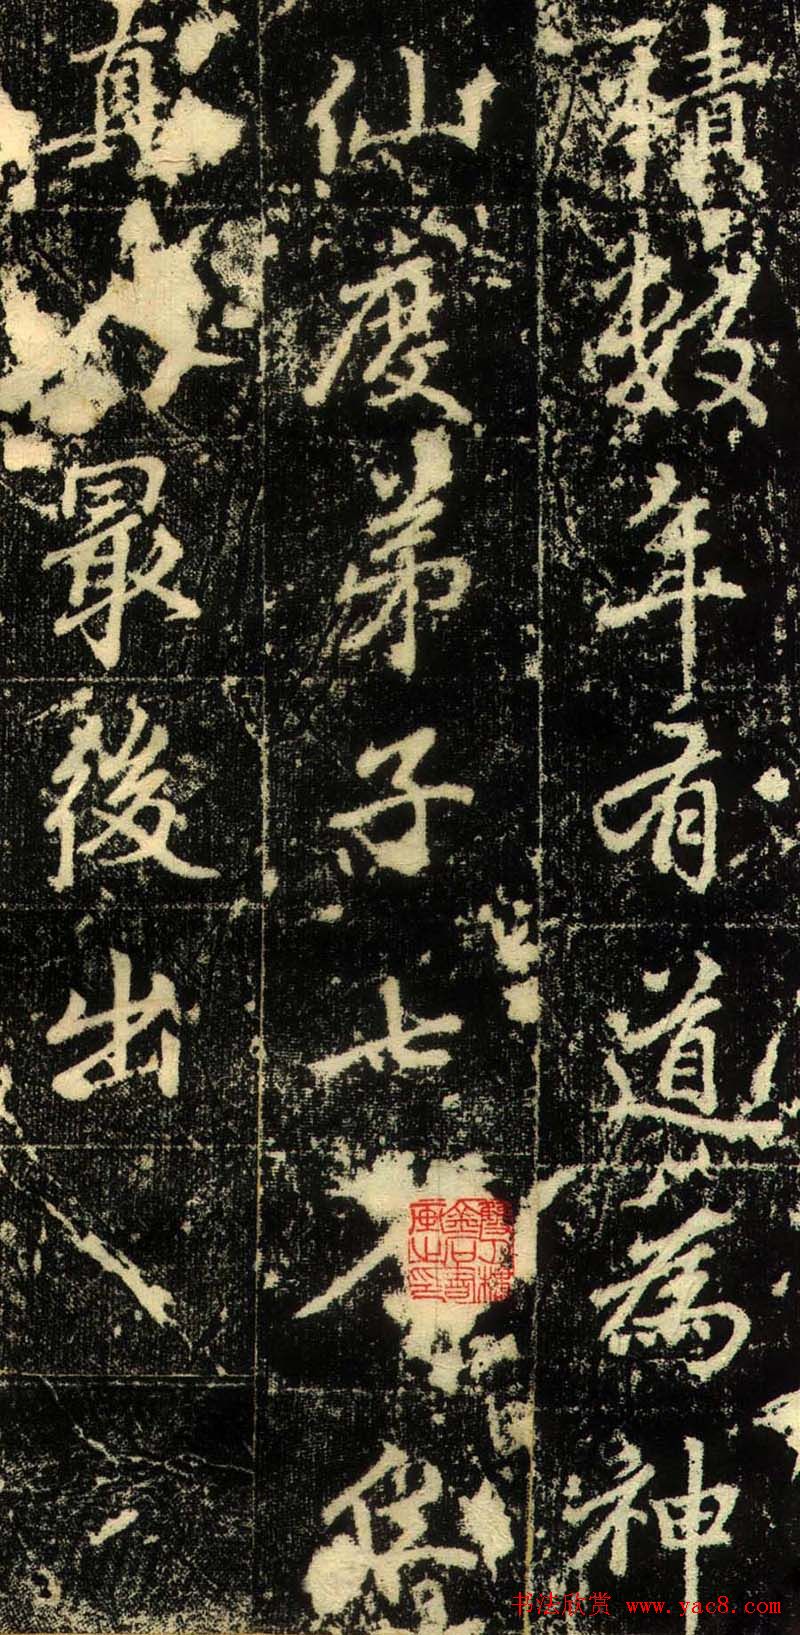 積數年有道為神
仙度弟子七
真最後出
书法欣赏 www.yac8.com